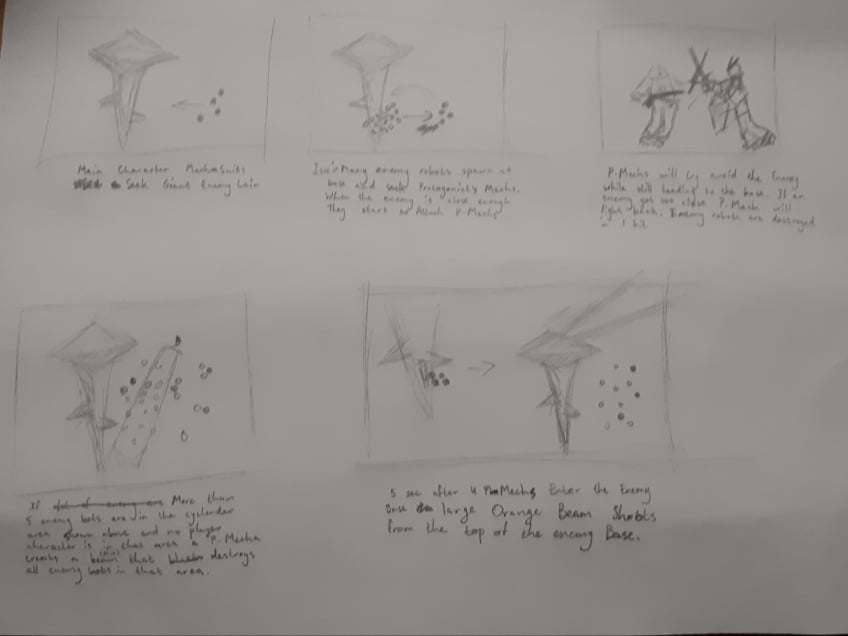 Main Character MechaSuits
Seek Giant Enemy Lair
Many enemy robots spawn at
base and seek Protagonist's Mechs.
When the enemy is close enough
They start to Attack P-Mechs
P-Mechs will try avoid the Enemy
while still heading to the base. If an
enemy gets too close P-Mech will
fight back. Enemy robots are destroyed
in 1 hit.
If More than
5 enemy bots are in the cyclinder
area shown above and no player
character is in that area a P. Mecha
creates a beam that destroys
all enemy bots in that area.
5 sec after 4 P-Mechs Enter the Enemy
Base large Orange Beam Shoots
from the top of the enemy Base.